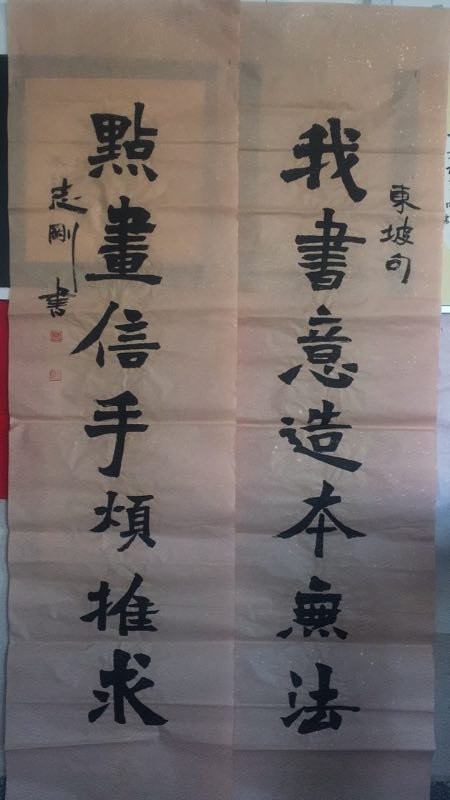 東坡句
我書意造本無法
點畫信手煩推求
志剛書